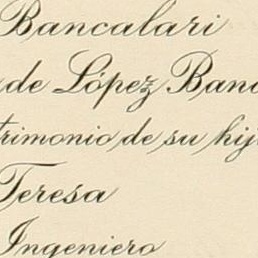 Bancalari
de López Banc
trimonio de su hij
Teresa
Ingeniero